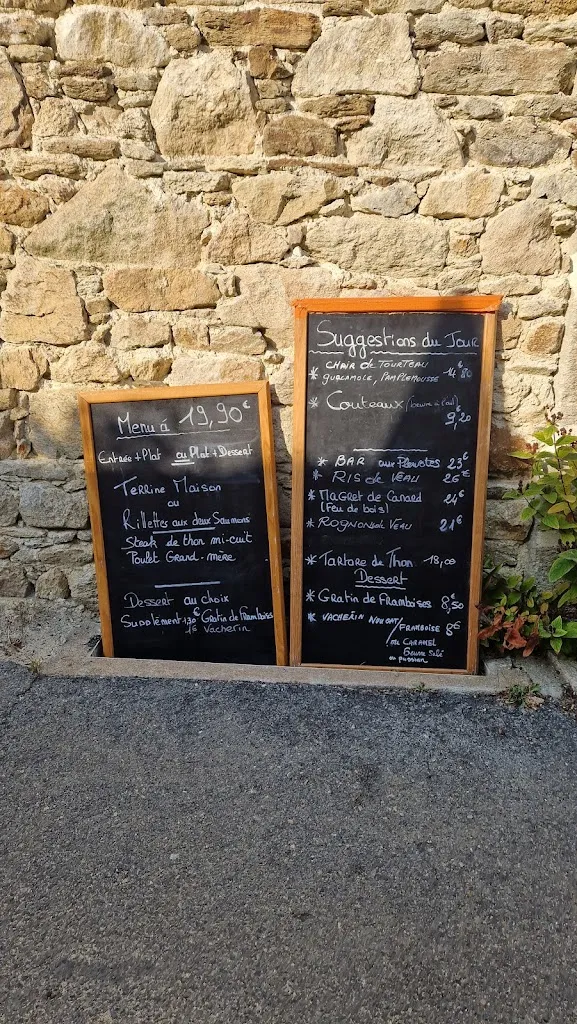 Menu à 19,90€
Entrée + Plat ou Plat + Dessert
Terrine Maison
ou
Rillettes aux deux Saumons
Steak de thon mi-cuit
Poulet Grand-mère
Dessert au choix
Supplément 1,30€ Gratin de Framboises
Vacherin
Suggestions du Jour
* CHAIR de TOURTEAU
GUACAMOLE, PAMPLEMOUSSE 14€80
* Couteaux (beurre à l'ail)
9,20
* BAR aux Pleurotes 23€
* RIS de VEAU 26€
* MAGRET de Canard 24€
(Feu de bois)
* ROGNON de VEAU 21€
* Tartare de Thon 18,00
Dessert
* GRATIN de FRAMBOISES 8,50€
* VACHERIN NOUGAT/FRAMBOISE 8€
ou CARAMEL
Beurre Salé
ou passion